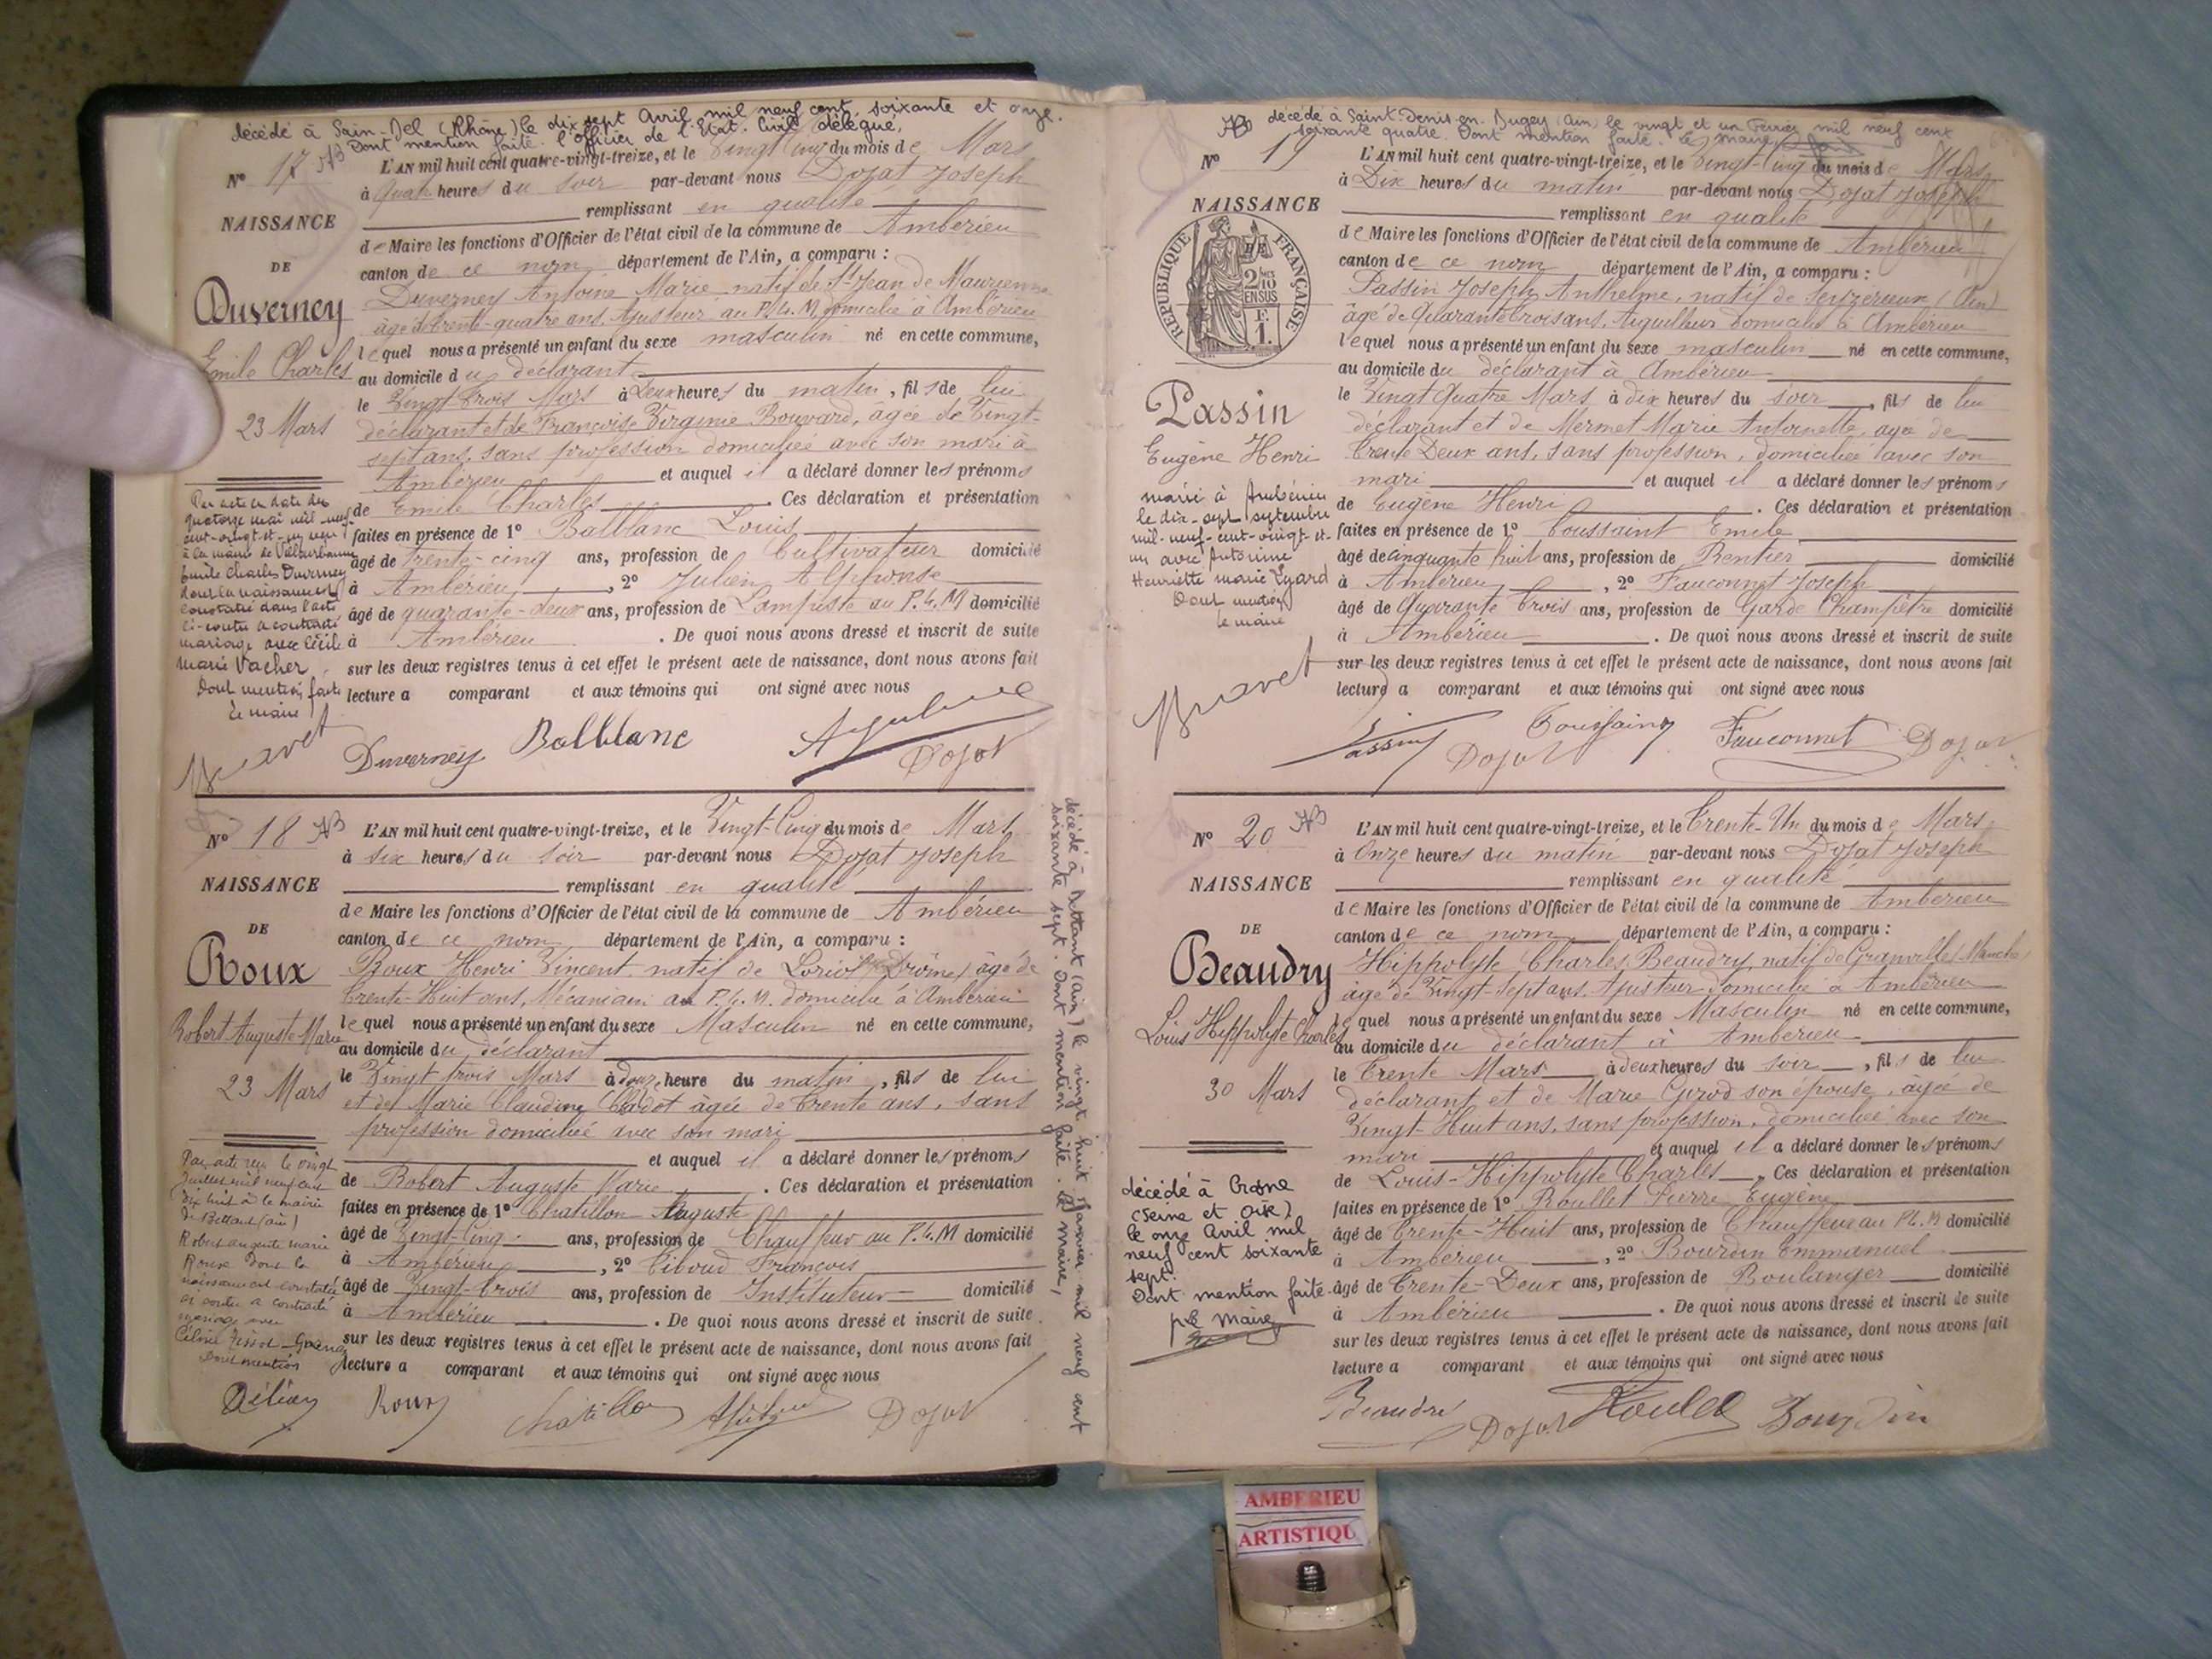 décédé à Sain-Bel (Rhône) le dix sept Avril mil neuf cent soixante et onze.
Dont mention faite. l'officier de l'Etat. Civil délégué,
N° 17
L'AN mil huit cent quatre-vingt-treize, et le Vingt Cinq du mois de Mars
à Quatre heures du soir par-devant nous Dojat Joseph
remplissant en qualité
NAISSANCE
de Maire les fonctions d'Officier de l'état civil de la commune de Ambérieu
DE
canton de ce nom département de l'Ain, a comparu :
Duverney
Duverney Antoine Marie natif de St Jean de Maurienne
âgé de trente-quatre ans, Ajusteur au P.L.M domicilié à Ambérieu
Emile Charles
lequel nous a présenté un enfant du sexe masculin né en cette commune,
au domicile du déclarant
23 Mars
le Vingt trois Mars à Deux heures du matin, fils de lui
déclarant et de Françoise Virginie Bouvard, agée de Vingt-
sept ans, sans profession domiciliée avec son mari à
Ambérieu et auquel il a déclaré donner les prénoms
de Emile Charles. Ces déclaration et présentation
faites en présence de 1° Balblanc Louis
âgé de trente-cinq ans, profession de Cultivateur domicilié
à Ambérieu, 2° Julien Alphonse
âgé de quarante-deux ans, profession de Lampiste au P.L.M domicilié
à Ambérieu. De quoi nous avons dressé et inscrit de suite
sur les deux registres tenus à cet effet le présent acte de naissance, dont nous avons fait
lecture a comparant et aux témoins qui ont signé avec nous
Par acte en date du
quatorze mai mil neuf
cent-vingt-et-un reçu
à la mairie de Villeurbanne
Emile Charles Duverney
dont la naissance est
constatée dans l'acte
ci-contre a contracté
mariage avec Cécile
Marie Vacher
Dont mention faite
Le maire
Bravet
Duverney Balblanc Dojat
N° 18
L'AN mil huit cent quatre-vingt-treize, et le Vingt-Cinq du mois de Mars
à six heures du soir par-devant nous Dojat Joseph
remplissant en qualité
NAISSANCE
de Maire les fonctions d'Officier de l'état civil de la commune de Ambérieu
DE
canton de ce nom département de l'Ain, a comparu :
Roux
Roux Henri Vincent natif de Loriol (Drôme) âgé de
trente-Huit ans, Mécanicien au P.L.M. domicilié à Ambérieu
Robert Auguste Marie
lequel nous a présenté un enfant du sexe Masculin né en cette commune,
au domicile du déclarant
23 Mars
le Vingt trois Mars à heure du matin, fils de lui
et de Marie Claudine âgée de trente ans, sans
profession domiciliée avec son mari
et auquel il a déclaré donner les prénoms
de Robert Auguste Marie. Ces déclaration et présentation
faites en présence de 1° Chatillon Auguste
âgé de Vingt-Cinq ans, profession de Chauffeur au P.L.M domicilié
à Ambérieu, 2° François
âgé de Vingt-trois ans, profession de Instituteur domicilié
à Ambérieu. De quoi nous avons dressé et inscrit de suite
sur les deux registres tenus à cet effet le présent acte de naissance, dont nous avons fait
lecture a comparant et aux témoins qui ont signé avec nous
Par acte reçu le vingt
Juillet mil neuf cent
dix huit à la mairie
de Bettant (ain)
Robert auguste marie
Roux dont la
naissance est constatée
ci contre a contracté
mariage avec
Dont mention
Roux Chatillon Dojat
décédé à Bettant (Ain) le vingt huit Janvier mil neuf cent
soixante sept. Dont mention faite. Le maire,
décédé à Saint-Denis-en-Bugey (Ain) le vingt et un Février mil neuf cent
soixante quatre. Dont mention faite. Le Maire
N° 19
L'AN mil huit cent quatre-vingt-treize, et le Vingt-Cinq du mois de Mars
à Dix heures du matin par-devant nous Dojat Joseph
NAISSANCE
remplissant en qualité
de Maire les fonctions d'Officier de l'état civil de la commune de Ambérieu
canton de ce nom département de l'Ain, a comparu :
RÉPUBLIQUE FRANÇAISE
2/10 EN SUS
F. 1.
Passin Joseph Anthelme, natif de Seyzérieux (Ain)
âgé de Quarante trois ans, Aiguilleur domicilié à Ambérieu
lequel nous a présenté un enfant du sexe masculin né en cette commune,
au domicile du déclarant à Ambérieu
Passin
le Vingt Quatre Mars à dix heures du soir, fils de lui
déclarant et de Mermet Marie Antoinette, agée de
Eugène Henri
trente Deux ans, sans profession, domiciliée avec son
mari et auquel il a déclaré donner les prénoms
de Eugène Henri. Ces déclaration et présentation
faites en présence de 1° Toussaint Emile
âgé de cinquante huit ans, profession de Rentier domicilié
à Ambérieu, 2° Fauconnet Joseph
âgé de Quarante trois ans, profession de Garde Champêtre domicilié
à Ambérieu. De quoi nous avons dressé et inscrit de suite
sur les deux registres tenus à cet effet le présent acte de naissance, dont nous avons fait
lecture a comparant et aux témoins qui ont signé avec nous
marié à Ambérieu
le dix-sept septembre
mil-neuf-cent-vingt-et-
un avec Antonine
Henriette Marie
Dont mention
Le maire
Bravet
Passin Dojat Toussaint Fauconnet Dojat
N° 20
L'AN mil huit cent quatre-vingt-treize, et le Trente-Un du mois de Mars
à Onze heures du matin par-devant nous Dojat Joseph
remplissant en qualité
NAISSANCE
de Maire les fonctions d'Officier de l'état civil de la commune de Ambérieu
DE
canton de ce nom département de l'Ain, a comparu :
Beaudry
Hippolyte Charles Beaudry, natif de Granville (Manche)
âgé de Vingt-sept ans, Ajusteur domicilié à Ambérieu
Louis Hippolyte Charles
lequel nous a présenté un enfant du sexe Masculin né en cette commune,
au domicile du déclarant à Ambérieu
30 Mars
le Trente Mars à deux heures du soir, fils de lui
déclarant et de Marie Girod son épouse, âgée de
Vingt-Huit ans, sans profession, domiciliée avec son
mari et auquel il a déclaré donner les prénoms
de Louis-Hippolyte Charles. Ces déclaration et présentation
faites en présence de 1° Roullet Pierre Eugène
âgé de Trente-Huit ans, profession de Chauffeur au P.L.M domicilié
à Ambérieu, 2° Bourdin Emmanuel
âgé de Trente-Deux ans, profession de Boulanger domicilié
à Ambérieu. De quoi nous avons dressé et inscrit de suite
sur les deux registres tenus à cet effet le présent acte de naissance, dont nous avons fait
lecture a comparant et aux témoins qui ont signé avec nous
décédé à Crosne
(Seine et Oise)
le onze Avril mil
neuf cent soixante
sept.
Dont mention faite.
Le Maire
Beaudry Dojat Roullet Bourdin
AMBERIEU
ARTISTIQU